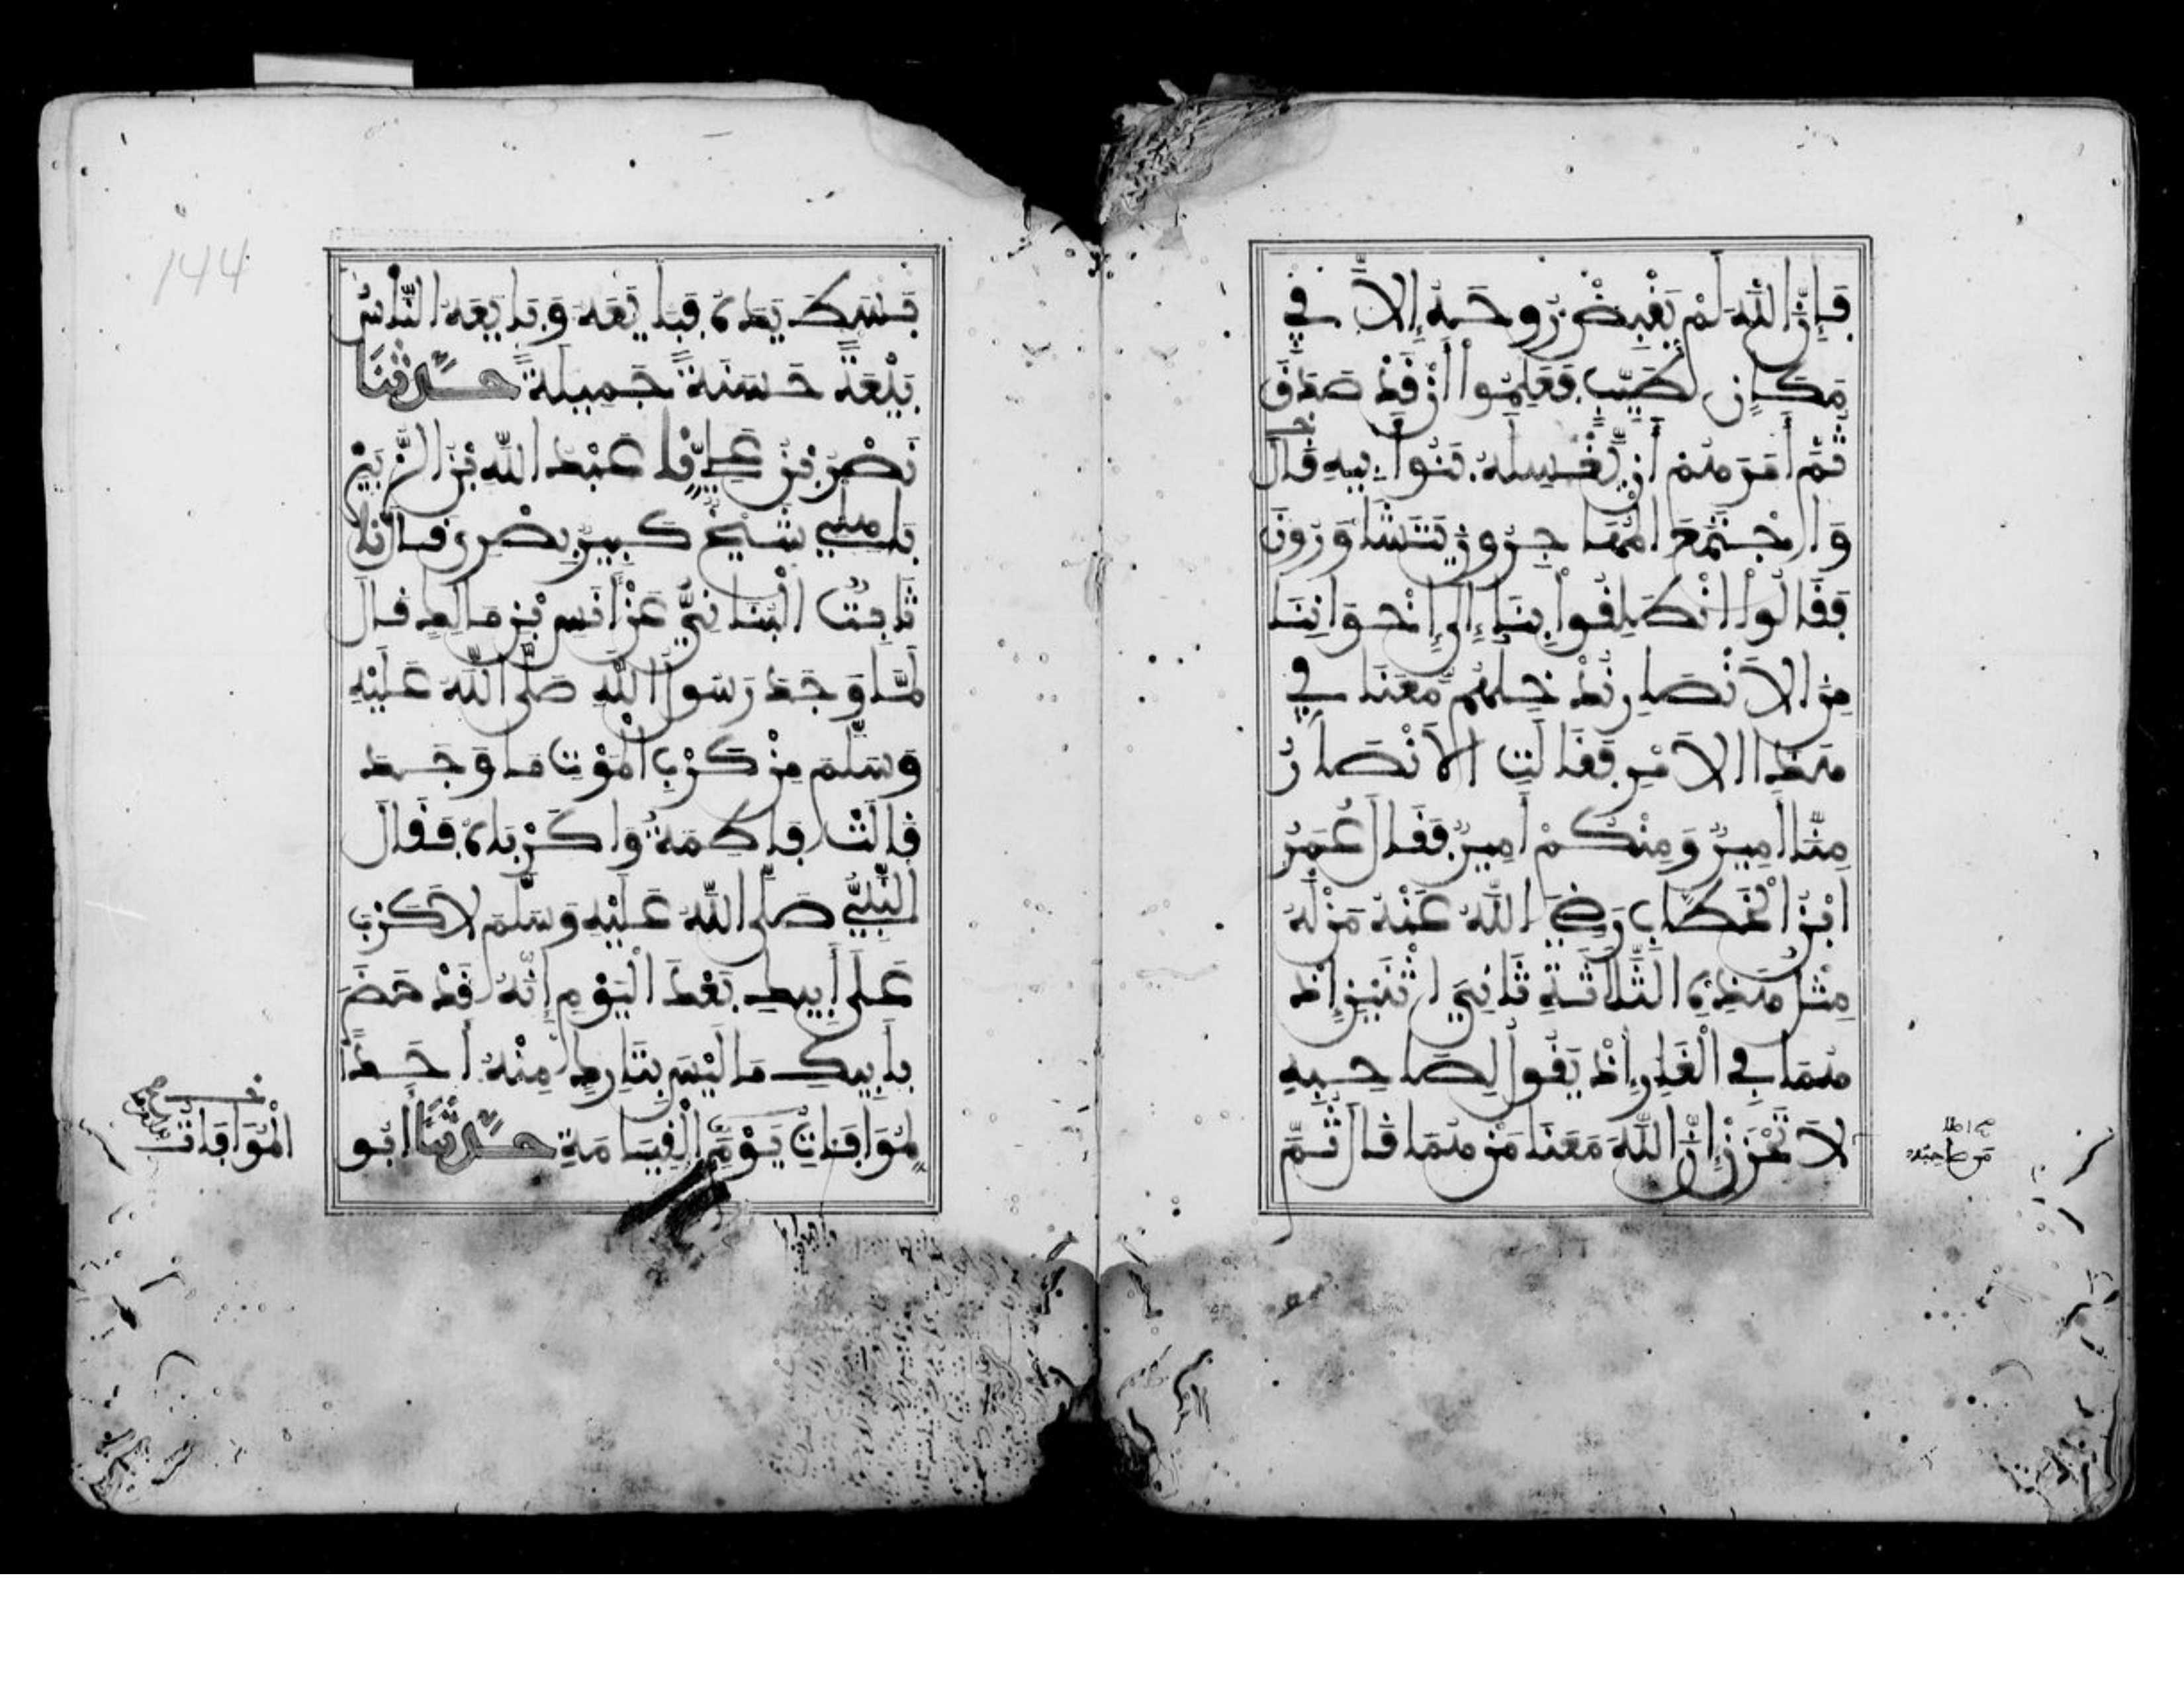 فَإِنَّ اللَّهَ لَمْ يَقْبِضْ رُوحَهُ إِلَّا فِي
مَكَانٍ طَيِّبٍ فَعَلِمُوا أَنْ قَدْ صَدَقَ
ثُمَّ أَمَرَهُمْ أَنْ يُغَسِّلَهُ بَنُوا أَبِيهِ قَالَ
وَاجْتَمَعَ الْمُهَاجِرُونَ يَتَشَاوَرُونَ
فَقَالُوا انْطَلِقُوا بِنَا إِلَى إِخْوَانِنَا
مِنَ الْأَنْصَارِ نُدْخِلْهُمْ مَعَنَا فِي
هَذَا الْأَمْرِ فَقَالَتِ الْأَنْصَارُ
مِنَّا أَمِيرٌ وَمِنْكُمْ أَمِيرٌ فَقَالَ عُمَرُ
ابْنُ الْخَطَّابِ رَضِيَ اللَّهُ عَنْهُ مَنْ لَهُ
مِثْلُ هَذِهِ الثَّلَاثَةِ ثَانِيَ اثْنَيْنِ إِذْ
هُمَا فِي الْغَارِ إِذْ يَقُولُ لِصَاحِبِهِ
لَا تَحْزَنْ إِنَّ اللَّهَ مَعَنَا مَنْ هُمَا قَالَ ثُمَّ
بَسَطَ يَدَهُ فَبَايَعَهُ وَبَايَعَهُ النَّاسُ
بَيْعَةً حَسَنَةً جَمِيلَةً حَدَّثَنَا
نَصْرُ بْنُ عَلِيٍّ نَا عَبْدُ اللَّهِ بْنُ الزُّبَيْرِ
بَاهِلِيٌّ شَيْخٌ كَبِيرٌ بَصْرِيٌّ قَالَ نَا
ثَابِتٌ الْبُنَانِيُّ عَنْ أَنَسِ بْنِ مَالِكٍ قَالَ
لَمَّا وَجَدَ رَسُولُ اللَّهِ صَلَّى اللَّهُ عَلَيْهِ
وَسَلَّمَ مِنْ كَرْبِ الْمَوْتِ مَا وَجَدَ
قَالَتْ فَاطِمَةُ وَاكَرْبَاهُ فَقَالَ
النَّبِيُّ صَلَّى اللَّهُ عَلَيْهِ وَسَلَّمَ لَا كَرْبَ
عَلَى أَبِيكِ بَعْدَ الْيَوْمِ إِنَّهُ قَدْ حَضَرَ
بِأَبِيكِ مَا لَيْسَ بِتَارِكٍ مِنْهُ أَحَدًا
لِمُوَافَاتِ يَوْمَ الْقِيَامَةِ حَدَّثَنَا أَبُو
الْمُوَافَاةُ
144